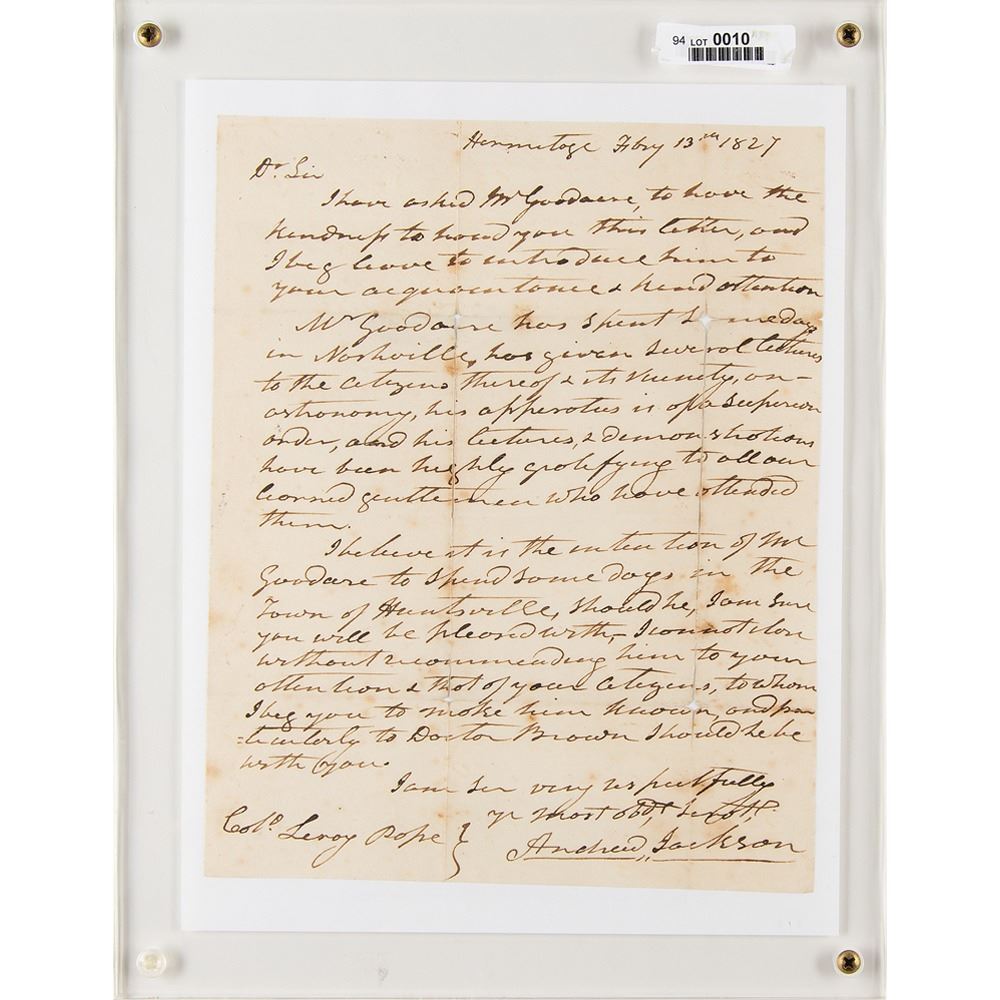 94 LOT 0010
Hermitage Fbry 13th 1827
Dr. Sir
I have asked Mr Goodacre, to have the
kindness to hand you this letter, and
I beg leave to introduce him to
your acquaintance & kind attention
Mr Goodacre has spent some days
in Nashville, has given several lectures
to the citizens thereof & its vicinity, on—
astronomy, his apperatus is of a superior
order, and his lectures, & demonstrations
have been highly gratifying to all our
learned gentlemen who have attended
them.
I believe it is the intention of Mr
Goodacre to spend some days in the
Town of Huntsville, should he, I am sure
you will be pleased with,— I cannot close
without recommending him to your
attention & that of your citizens, to whom
I beg you to make him known, and par
=ticularly to Doctor Brown should he be
with you.
I am Sir very respectfully
yr most obdt Servt.
Colo. Leroy Pope } Andrew Jackson